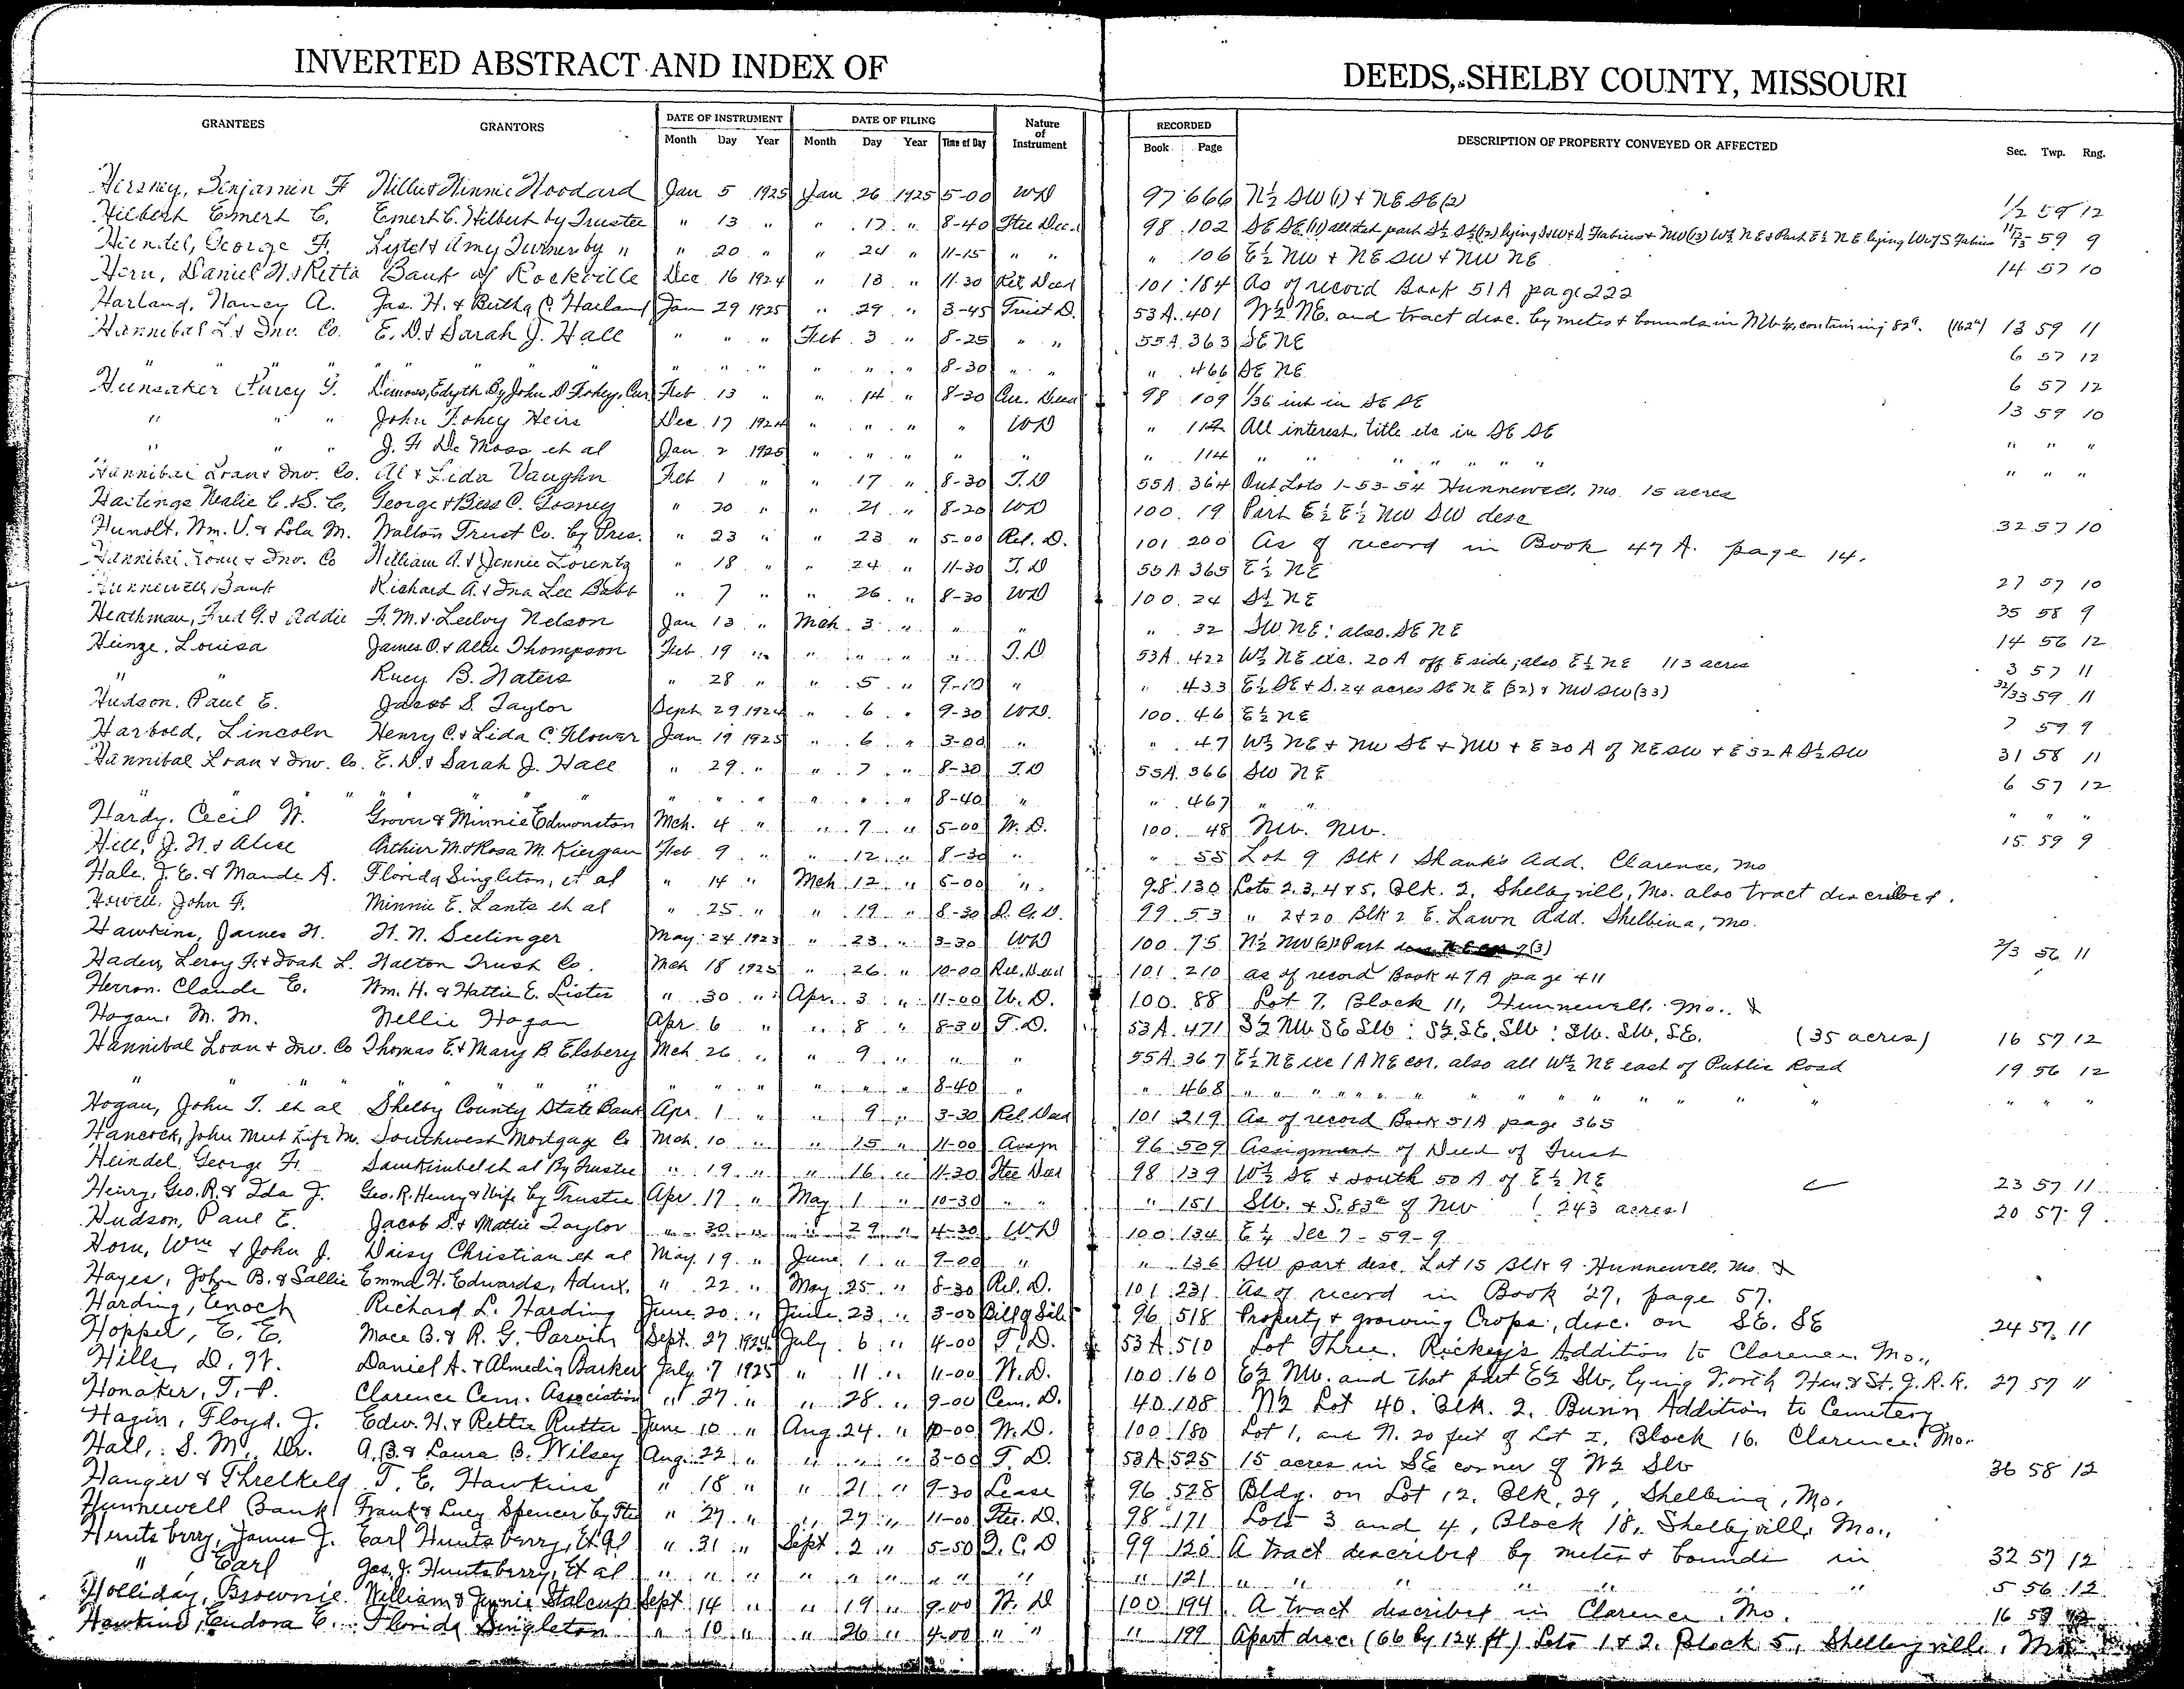 INVERTED ABSTRACT AND INDEX OF DEEDS, SHELBY COUNTY, MISSOURI
GRANTEES GRANTORS DATE OF INSTRUMENT DATE OF FILING Nature of Instrument RECORDED DESCRIPTION OF PROPERTY CONVEYED OR AFFECTED Sec. Twp. Rng.
Month Day Year Month Day Year Time of Day Book Page
Benjamin F Jan 5 1925 Jan 26 1925 5-00 WD 97 666 N½ SW (1) & NE SE (2) ½ 59 12
Hilbert Emert C. Emert C. Hilbert by Trustee " 13 " " 17 " 8-40 Stee Dee. 98 102 SE SE (1) 59 9
George F. Lytel & Amy Turner by " " 20 " " 24 " 11-15 " " " 106 E½ NW & NE SW & NW NE 14 57 10
Horn, Daniel N. & Retta Bank of Rockville Dec 16 1924 " 13 " 11-30 Rel Deed 101 184 As of record Book 51A page 222
Harland, Nancy A. Jas. H. & Bertha C. Harland Jan 29 1925 " 29 " 3-45 Trust D. 53A 401 W½ NE. and tract desc. by metes & bounds in NW¼, containing 82ª. (162ª) 13 59 11
Hannibal L & Inv. Co. E. D. & Sarah J. Hall " " " Feb 3 " 8-25 " " 55A 363 SE NE 6 57 12
" " " " " " " " " " " 8-30 " " " 466 SE NE 6 57 12
Hunsaker Percy G. Demoss, Edyth By John D Fohey, Cur Feb 13 " " 14 " 8-30 Cur. Deed 98 109 1/36 int in SE SE 13 59 10
" " " John Fohey Heirs Dec 17 1924 " " " " WD " 112 All interest, title etc in SE SE " " "
" " " J. F. De Moss et al Jan 2 1925 " " " " " " 114 " " " " " " " " " "
Hannibal Loan & Inv. Co. Al & Lida Vaughn Feb 1 " " 17 " 8-30 T.D 55A 364 Out Lots 1-53-54 Hunnewell, Mo. 15 acres
Hastings Nealie C. & S. C. George & Bess C. Gosney " 20 " " 21 " 8-20 WD 100 19 Part E½ E½ NW SW desc 32 57 10
Hunolt, Wm. V. & Lola M. Walton Trust Co. by Pres. " 23 " " 23 " 5-00 Rel. D. 101 200 As of record in Book 47 A. page 14.
Hannibal Loan & Inv. Co William A. & Jennie Lorentz " 18 " " 24 " 11-30 T.D 55A 365 E½ NE 27 57 10
Hunnewell Bank Richard A. & Ina Lee Babb " 7 " " 26 " 8-30 WD 100 24 S½ NE 35 58 9
Heathman, Fred G. & Addie F. M. & Nelson Jan 13 " Mch 3 " " " " 32 SW NE; also SE NE 14 56 12
Heinze, Louisa James O. & Allie Thompson Feb 19 " " " " " T.D 53A 422 W½ NE exc. 20 A off E side; also E½ NE 113 acres 3 57 11
" " B. Waters " 28 " " 5 " 9-10 " " 433 E½ SE & S. 24 acres SE NE (32) & NW SW (33) 32/33 59 11
Hudson, Paul E. Jacob S. Taylor Sept 29 1924 " 6 " 9-30 WD. 100 46 E½ NE 7 59 9
Harbold, Lincoln Henry C. & Lida C. Flower Jan 19 1925 " 6 " 3-00 " " 47 W½ NE & NW SE & NW & E 30 A of NE SW & E 52 A S½ SW 31 58 11
Hannibal Loan & Inv. Co. E. D. & Sarah J. Hall " 29 " " 7 " 8-30 T.D 55A 366 SW NE 6 57 12
" " " " " " " " " " " 8-40 " " 467 " " " " "
Hardy, Cecil W. Grover & Minnie Edmonston Mch. 4 " " 7 " 5-00 W. D. 100 48 NW. NW. 15 59 9
Hill, J. W. & Alice Arthur M. & Rosa M. Kiergan Feb 9 " " 12 " 8-30 " " 55 Lot 9 Blk 1 Shank's Add. Clarence, Mo
Hale, J. E. & Maude A. Florida Singleton, et al " 14 " Mch 12 " 5-00 " 98 130 Lots 2, 3, 4 & 5, Blk. 2, Shelbyville, Mo. also tract described.
Howell, John F. Minnie E. Lantz et al " 25 " " 19 " 8-30 Q. C. D. 99 53 " 2 & 20 Blk 2 E. Lawn Add. Shelbina, Mo.
Hawkins, James W. W. N. Seelinger May 24 1923 " 23 " 3-30 WD 100 75 N½ NW (2) & Part (3) 2/3 56 11
Haden, Leroy F. & Leah L. Walton Trust Co. Mch 18 1925 " 26 " 10-00 Rel. Deed 101 210 as of record Book 47A page 411
Herron, Claude E. Wm. H. & Hattie E. Lister " 30 " Apr. 3 " 11-00 W. D. 100 88 Lot 7, Block 11, Hunnewell, Mo.
Hogan, M. M. Nellie Hogan Apr. 6 " " 8 " 8-30 T. D. 53A 471 S½ NW SE SW; S½ SE, SW; SW. SW, SE. (35 acres) 16 57 12
Hannibal Loan & Inv. Co Thomas E. & Mary B Elsbery Mch. 26 " " 9 " " " 55A 367 E½ NE exc 1A NE cor. also all W½ NE east of Public Road 19 56 12
" " " " " " " " " " " 8-40 " " 468 " " " " " " " " " " " " "
Hogan, John T. et al Shelby County State Bank Apr. 1 " " 9 " 3-30 Rel Deed 101 219 As of record Book 51A page 365
Hancock, John Mut Life Ins. Southwest Mortgage Co Mch. 10 " " 15 " 11-00 Assgn 96 509 Assignment of Deed of Trust
Heindel, George F. Sam Kimbel et al By Trustee " 19 " " 16 " 11-30 Stee Deed 98 139 W½ SE & South 50 A of E½ NE 23 57 11
Henry, Geo. R. & Ida J. Geo. R. Henry & Wife by Trustee Apr. 17 " May 1 " 10-30 " " " 151 SW. & S. 83ª of NW (243 acres) 20 57 9
Hudson, Paul E. Jacob S. & Mattie Taylor " 30 " " 29 " 4-30 WD 100 134 E½ Sec 7-59-9
Horn, Wm & John J. Daisy Christian et al May 19 " June 1 " 9-00 " " 136 SW part desc. Lot 15 Blk 9 Hunnewell, Mo.
Hayes, John B. & Sallie Emma H. Edwards, Admx. " 22 " May 25 " 8-30 Rel. D. 101 231 As of record in Book 27, page 57.
Harding, Enoch Richard L. Harding June 20 " June 23 " 3-00 Bill of Sale 96 518 Property & growing Crops, desc. on SE. SE 24 57 11
Hopper, E. E. Mace B. & R. G. Parvin Sept. 27 1924 July 6 " 4-00 T. D. 53A 510 Lot Three, Rickey's Addition to Clarence, Mo.,
Hills, D. W. Daniel A. & Almedia Barker July 7 1925 " 11 " 11-00 W. D. 100 160 E½ NW. and that part E½ SW, lying North Han. & St. J. R. R. 27 57 11
Honaker, T. P. Clarence Cem. Association " 27 " " 28 " 9-00 Cem. D. 40 108 N½ Lot 40, Blk. 2, Bunn Addition to Cemetery
Hagin, Floyd. J. Edw. H. & Rettie Rutter June 10 " Aug. 24 " 10-00 W. D. 100 180 Lot 1, and N. 20 feet of Lot 2, Block 16. Clarence, Mo.
Hall, S. M., Dr. A. B. & Laura B. Wilsey Aug. 22 " " " " 3-00 T. D. 53A 525 15 acres in SE corner of W½ SW 36 58 12
Hanger & Threlkeld T. E. Hawkins " 18 " " 21 " 9-30 Lease 96 528 Bldg. on Lot 12, Blk. 29, Shelbina, Mo.
Hunnewell Bank Frank & Lucy Spencer by Stee " 27 " " 27 " 11-00 Stee. D. 98 171 Lots 3 and 4, Block 18, Shelbyville, Mo.,
Huntsberry, James J. Earl Huntsberry, Et al " 31 " Sept. 2 " 5-50 Q. C. D 99 120 A tract described by metes & bounds in 32 57 12
" Earl Jas. J. Huntsberry, Et al " " " " " " " " " " 121 " " " " " " 5 56 12
Holliday, Brownie William & Jennie Stalcup Sept 14 " " 19 " 9-00 W. D 100 194 A tract described in Clarence, Mo. 16 57
Hawkins, Eudora E. Florida Singleton " 10 " " 26 " 4-00 " " " 199 A part desc. (66 by 124 ft) Lots 1 & 2, Block 5, Shelbyville, Mo